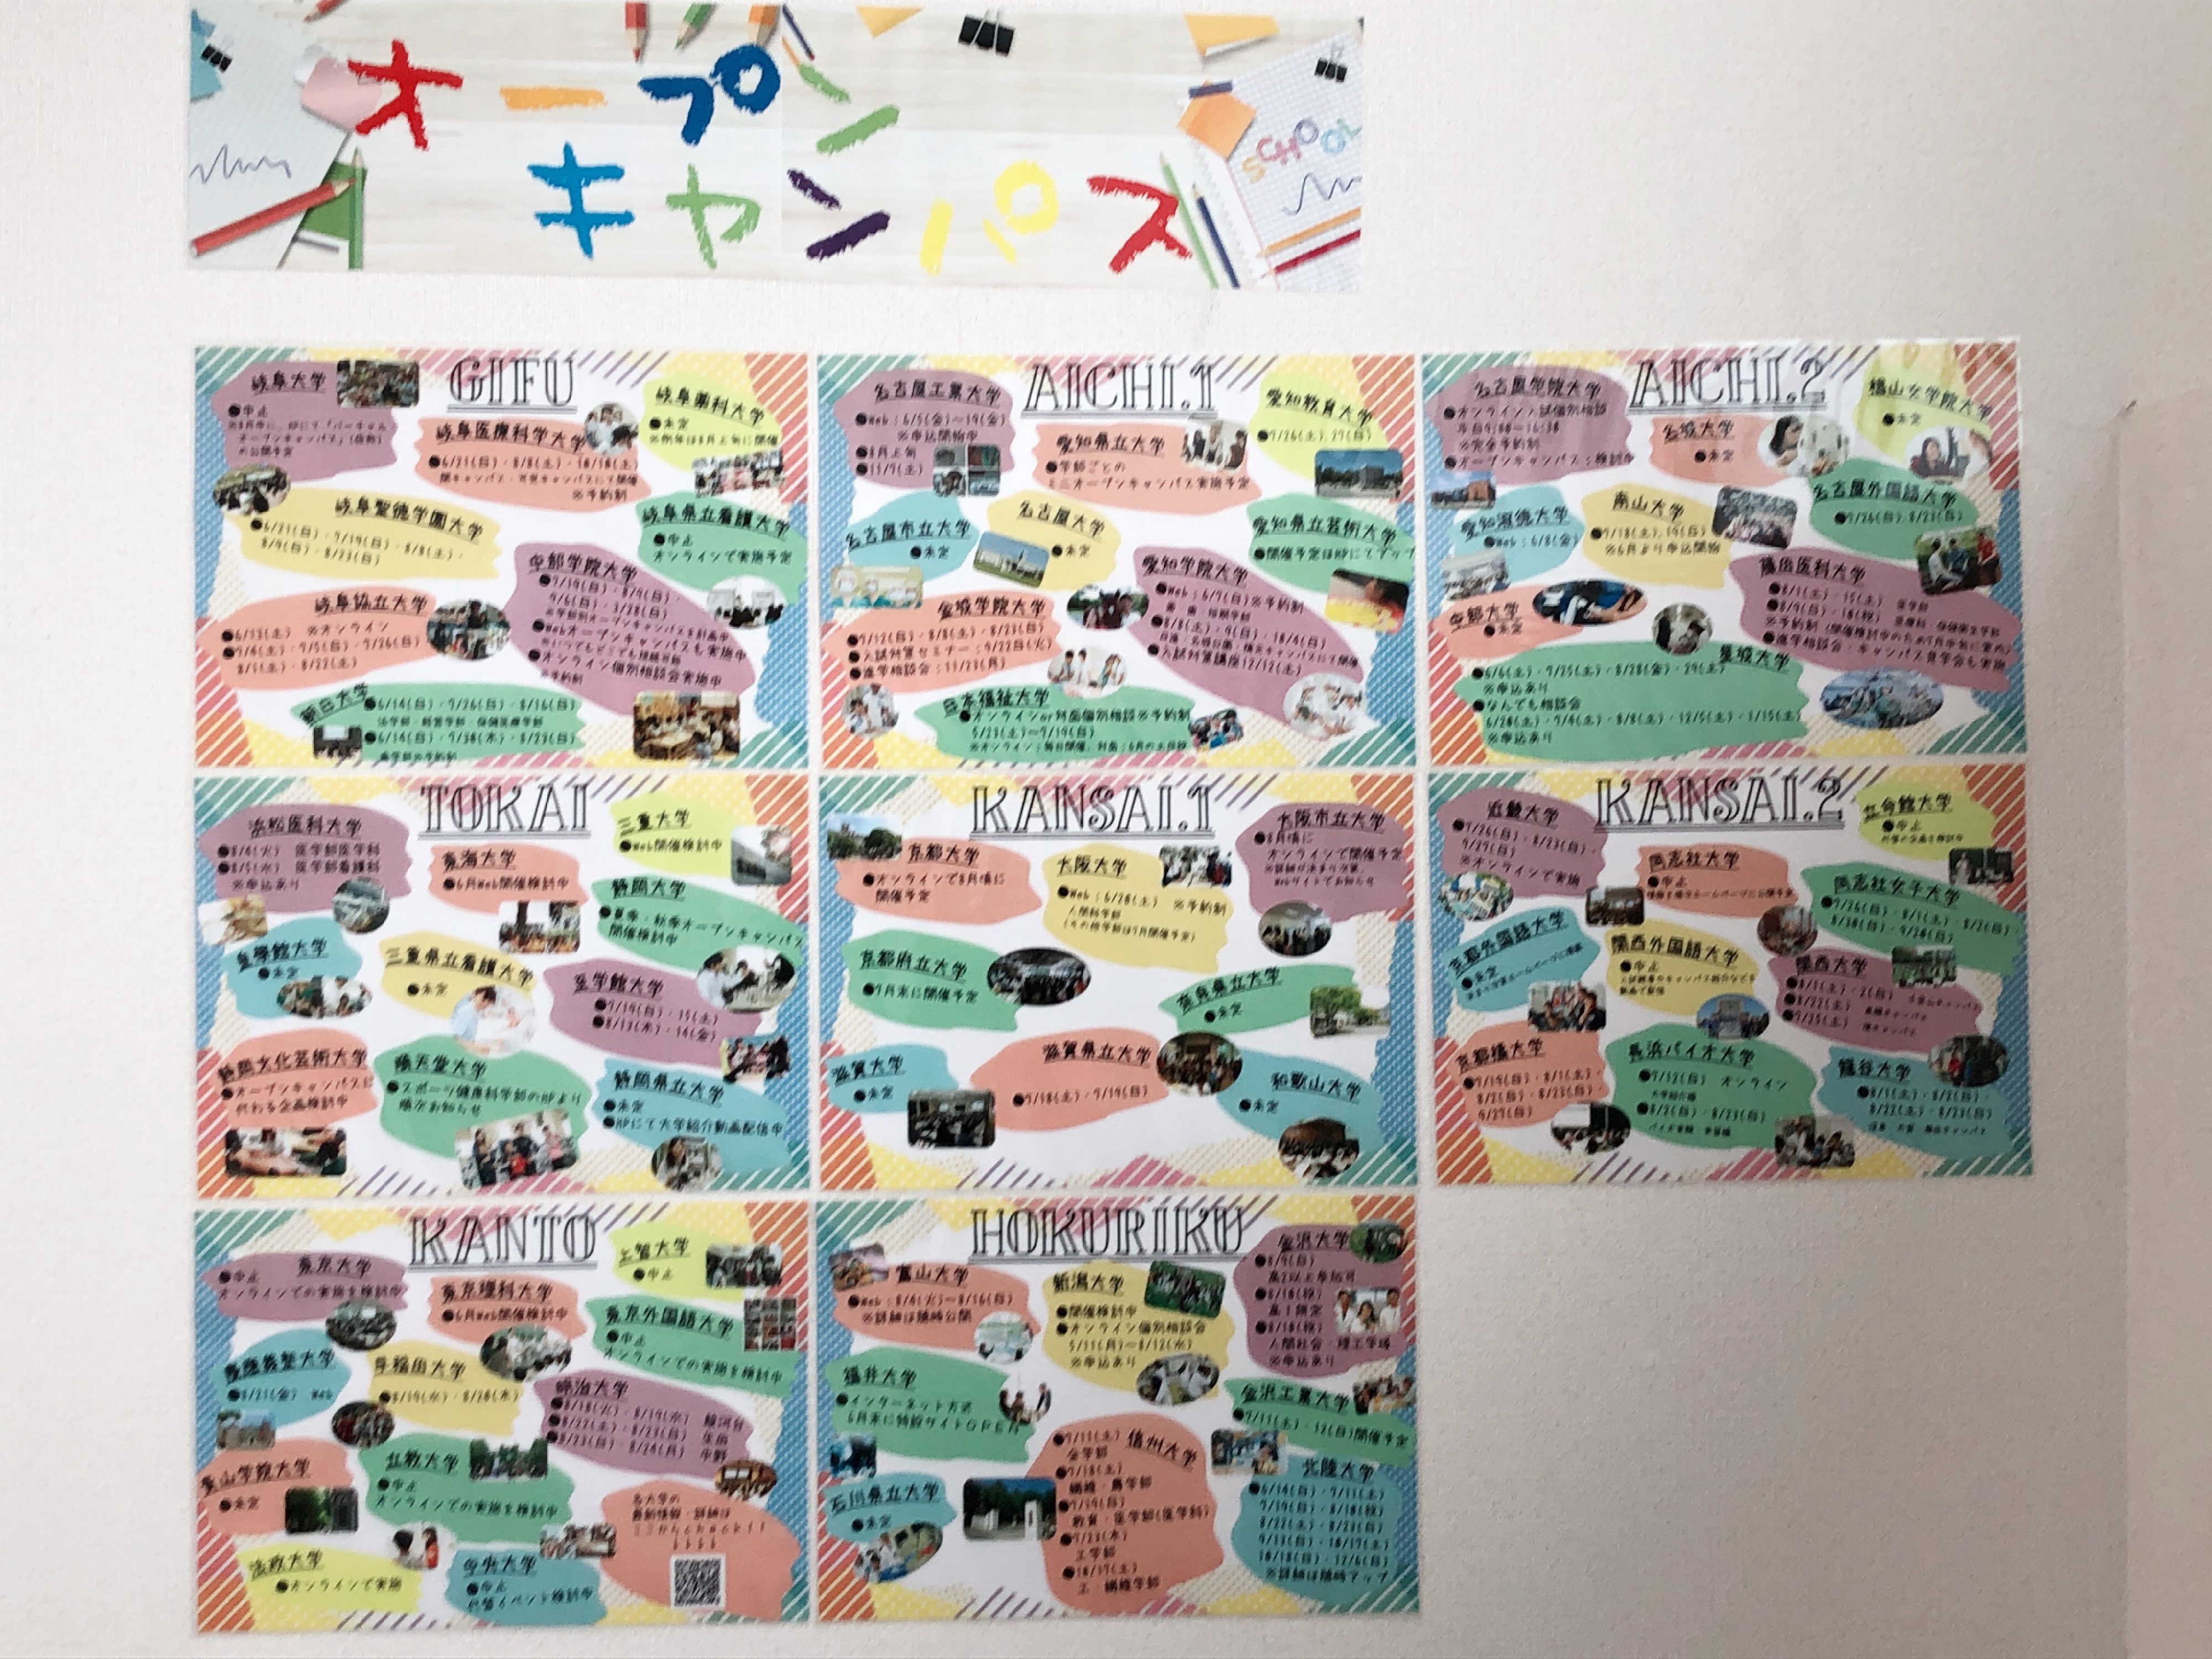 オープン
キャンパス
SCHOOL
GIFU
岐阜大学
●中止
オープンキャンパス」(仮称)
の公開予定
岐阜医療科学大学
●6/21(日)・8/8(土)・10/18(土)
関キャンパス・可児キャンパスにて開催
※予約制
岐阜薬科大学
●未定
※例年は8月上旬に開催
岐阜聖徳学園大学
●6/21(日)・7/19(日)・8/8(土)・
8/9(日)・8/23(日)
岐阜県立看護大学
●中止
オンラインで実施予定
中部学院大学
●7/19(日)・8/9(日)・
9/6(日)・3/28(日)
●Webオープンキャンパスも実施中
●オンライン個別相談会実施中
※予約制
岐阜協立大学
●6/13(土) ※オンライン
●7/4(土)・7/5(日)・7/26(日)
8/1(土)・8/22(土)
朝日大学
●6/14(日)・7/26(日)・8/16(日)
法学部・経営学部・保健医療学部
AICHI.1
名古屋工業大学
●Web:6/5(金)~19(金)
※申込開始中
●8月上旬
●11/7(土)
愛知県立大学
●学部ごとの
ミニオープンキャンパス実施予定
愛知教育大学
●7/26(土),27(日)
名古屋市立大学
●未定
名古屋大学
●未定
愛知県立芸術大学
●開催予定はHPにてアップ
愛知学院大学
●8/8(土)・9(日)・10/4(日)
●入試対策講座12/12(土)
金城学院大学
●7/12(日)・8/8(土)・8/23(日)
●入試対策セミナー:9/22日(火)
●進学相談会:11/23(月)
日本福祉大学
●オンラインor対面個別相談※予約制
5/23(土)~7/19(日)
AICHI.2
名古屋学院大学
●オンライン入試個別相談
※完全予約制
●オープンキャンパス:検討中
名城大学
●未定
椙山女学院大学
●未定
愛知淑徳大学
●Web:6/8(金)
南山大学
●7/18(土),19(日)
※6月より申込開始
名古屋外国語大学
●7/26(日),8/23(日)
藤田医科大学
●進学相談会・キャンパス見学会も実施
中部大学
●未定
愛城大学
●6/6(土)・7/25(土)・8/28(金)・29(土)
※申込あり
●なんでも相談会
6/20(土)・7/4(土)・8/8(土)・12/5(土)・1/15(土)
※申込あり
TOKAI
浜松医科大学
●8/4(火) 医学部医学科
●8/5(水) 医学部看護科
※申込あり
東海大学
●6月Web開催検討中
三重大学
●Web開催検討中
静岡大学
●夏季・秋季オープンキャンパス
開催検討中
皇學館大学
●未定
三重県立看護大学
●未定
静岡文化芸術大学
●オープンキャンパスに
代わる企画検討中
順天堂大学
●スポーツ健康科学部のHPより
順次お知らせ
静岡県立大学
●未定
●HPにて大学紹介動画配信中
KANSAI.1
京都大学
●オンラインで8月頃に
開催予定
大阪大学
●Web:6/28(土) ※予約制
人間科学部
(その他学部は7月開催予定)
大阪市立大学
●8月頃に
オンラインで開催予定
Webサイトでお知らせ
京都府立大学
●7月末に開催予定
奈良県立大学
●未定
滋賀大学
●未定
滋賀県立大学
●7/18(土)・7/19(日)
和歌山大学
●未定
KANSAI.2
近畿大学
●7/26(日)・8/23(日)・
9/27(日)
※オンラインで実施
同志社大学
●中止
立命館大学
●中止
同志社女子大学
●7/26(日)・8/1(土)・8/2(日)・
京都外国語大学
●未定
関西外国語大学
●中止
関西大学
●8/1(土)・2(日)
●8/22(土)
京都橘大学
●7/19(日)・8/1(土)・
8/2(日)・8/23(日)
9/27(日)
長浜バイオ大学
●7/12(日) オンライン
●8/2(日)・8/23(日)
龍谷大学
●8/1(土)・8/2(日)・
8/22(土)・8/23(日)
KANTO
東京大学
●中止
オンラインでの実施を検討中
東京理科大学
●6月Web開催検討中
上智大学
●中止
東京外国語大学
●中止
オンラインでの実施を検討中
慶應義塾大学
●8/21(金) Web
早稲田大学
●8/19(水)・8/20(木)
明治大学
●8/22(土)・8/23(日) 生田
●8/23(日)・8/24(月) 中野
青山学院大学
●未定
立教大学
●中止
オンラインでの実施を検討中
法政大学
●オンラインで実施
中央大学
●中止
代替イベント検討中
各大学の
最新情報・詳細は
ここからcheck!!
↓↓↓↓
HOKURIKU
富山大学
●Web:8/4(火)~8/16(日)
※詳細は随時公開
新潟大学
●開催検討中
●オンライン個別相談会
5/11(月)~8/12(水)
※申込あり
金沢大学
●8/9(日)
高2以上参加可
●8/10(祝)
高1限定
●8/10(祝)
人間社会・理工学域
※申込あり
福井大学
●インターネット方式
6月末に特設サイトOPEN
金沢工業大学
●7/11(土)・12(日)開催予定
石川県立大学
●未定
信州大学
●7/11(土)
全学部
●7/18(土)
繊維・農学部
●7/19(日)
教育・医学部(医学科)
●7/23(木)
工学部
●10/17(土)
工・繊維学部
北陸大学
●6/14(日)・7/11(土)
7/19(日)・8/10(祝)
8/22(土)・8/23(日)
9/13(日)・10/17(土)
10/18(日)・12/6(日)
※詳細は随時アップ